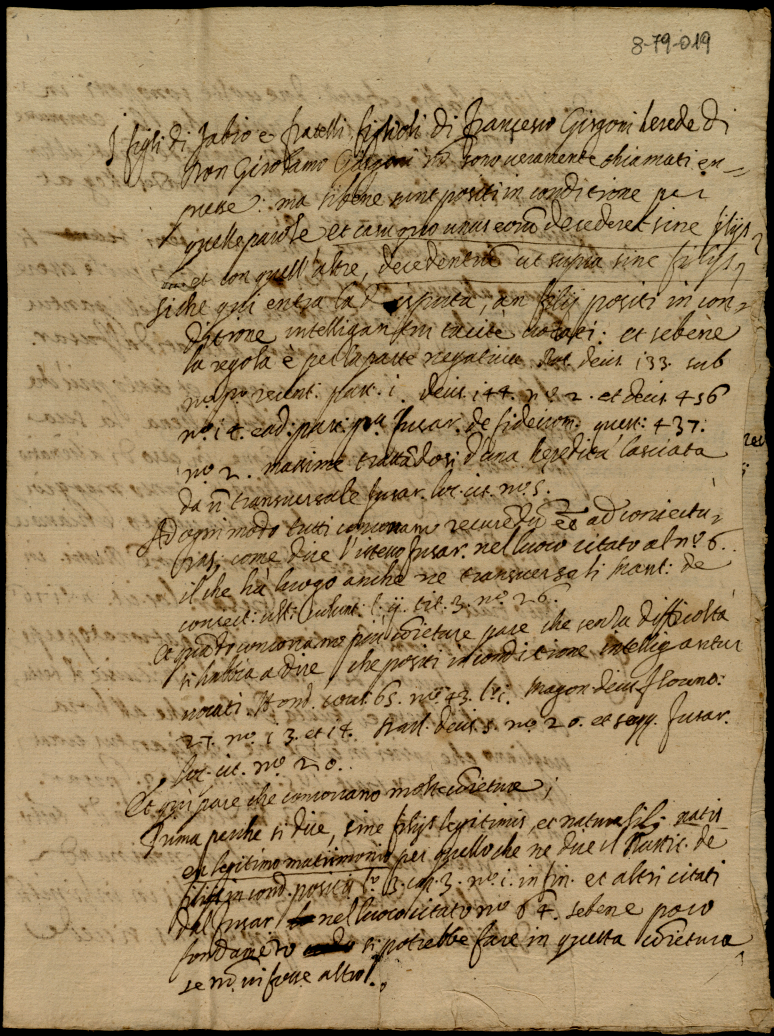 8-79-019
I figli di Fabio e fratelli figlioli di Francesco Girgoni herede di
Don Girolamo Girgoni no sono veramente chiamati en=
presse: ma sibene sunt positi in conditione per
quelle parole et casu quo unus eorum decederet sine filijs,
et con quell'altre, decedentium ut supra sine filijs,
siche qui entra la disputa, an filij positi in con=
ditione intelligantur tacite vocati: et sebene
la regola è per la parte negativa Rot. decis. 133. sub
n.º p.º recent. part. i. decis. 144. n.º 2. et decis. 456
n.º 14. ead. par. Fusar. de fideicom. quest. 437.
n.º 2. massime trattandosi d'una heredità lasciata
da un transversale Fusar. loc. cit. n.º 5.
Ad ogni modo tutti concorrano esse ad coniectu=
ras, come dice l'istesso Fusar. nel luoco citato al n.º 6.
il che hà luogo anche ne transversali Mant. de
coniect. ult. volunt. l. ij. tit. 3. n.º 26.
Et quando concorrano più coniecture pare che senza difficoltà
si habbia a dire che positi in conditione intelligantur
vocati Hond. cons. 65. n.º 43. l. i. Magon. decis. floren.
27. n.º 13. et 14. decis. 5. n.º 20. et seqq. Fusar.
loc. cit. n.º 20.
Et qui pare che concorrano molte coniecture;
Prima perche si dice, sine filijs legitimis, et naturalib. natis
ex legitimo matrimonio per quello che ne dice il de
filijs in cond. positis l. 3. cap. 3. n.º i. in fin. et altri citati
dal Fusar nel luoco citato n.º 64. sebene poco
fondamento si potrebbe fare in questa coniectura
se non vi fosse altro.